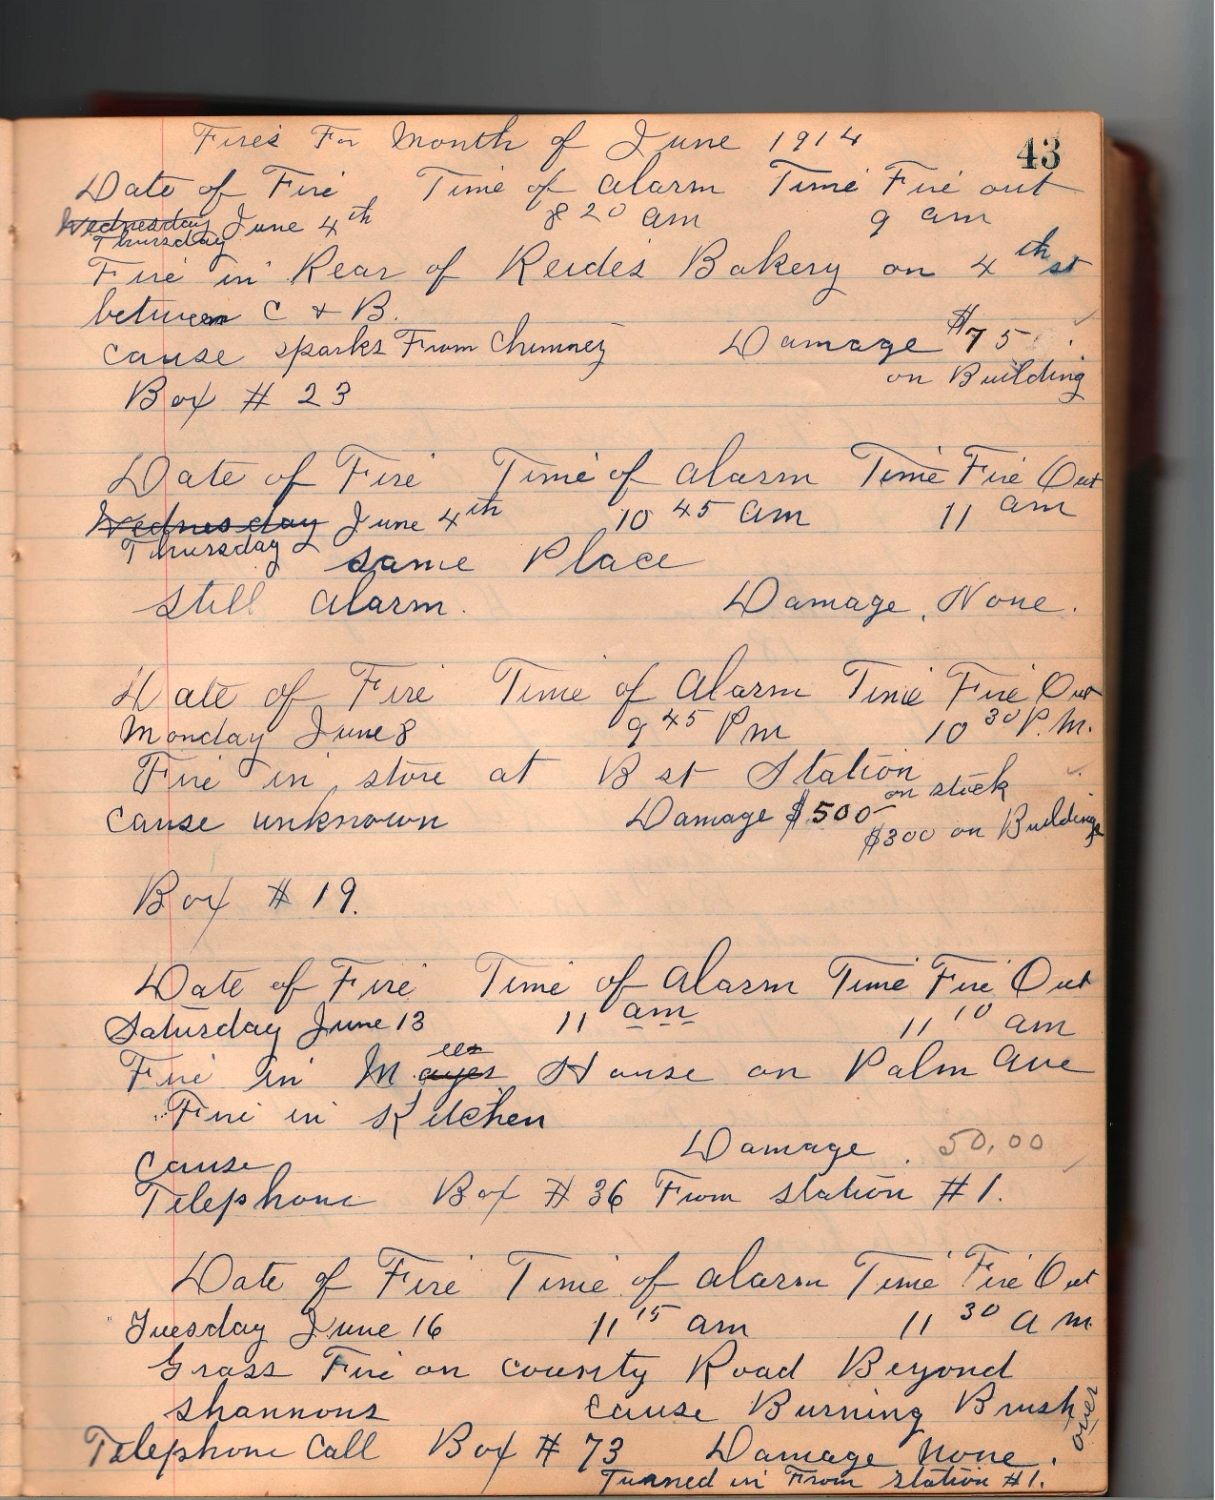 Fires For Month of June 1914
43
Date of Fire Time of alarm Time Fire out
Wednesday June 4th 8 20 am 9 am
Thursday
Fire in Rear of Reides Bakery on 4th st
between C & B.
cause sparks From Chimney Damage $75
on Building
Box # 23
Date of Fire Time of alarm Time Fire Out
Wednesday June 4th 10 45 am 11 am
Thursday same Place
still alarm. Damage None.
Date of Fire Time of alarm Time Fire Out
Monday June 8 9 45 Pm 10 30 P.M.
Fire in store at B st Station
on stock
cause unknown Damage $500
$300 on Buildings
Box # 19.
Date of Fire Time of alarm Time Fire Out
Saturday June 13 11 am 11 10 am
Fire in Mayes House on Palm ave
Fire in Kitchen
cause Damage 50.00
Telephone Box # 36 From station #1.
Date of Fire Time of alarm Time Fire Out
Tuesday June 16 11 15 am 11 30 a m
Grass Fire on county Road Beyond
shannons cause Burning Brush
over
Telephone Call Box # 73 Damage none.
Turned in From station #1.